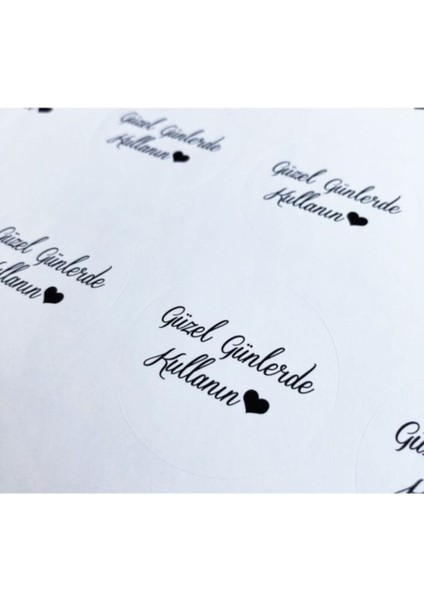 Güzel Günlerde
Kullanın
Güzel Günlerde
Kullanın
Güzel Günlerde
Kullanın
Güzel Günlerde
Kullanın